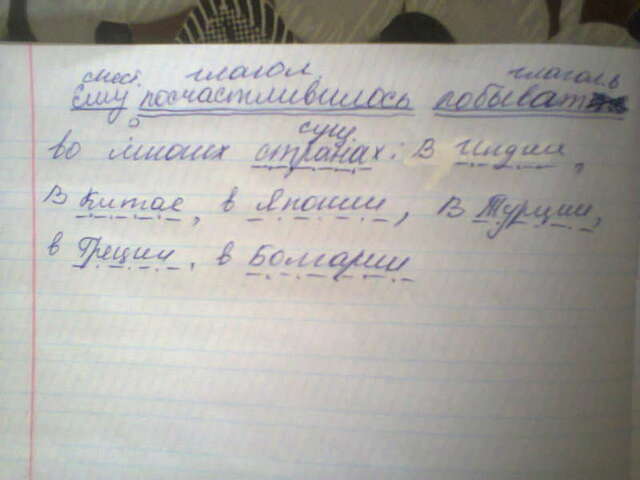 мест. глагол глаголь
Ему посчастливилось побывать
сущ.
во многих странах: В Индии,
В Китае, в Японии, В Турции,
в Греции, в Болгарии